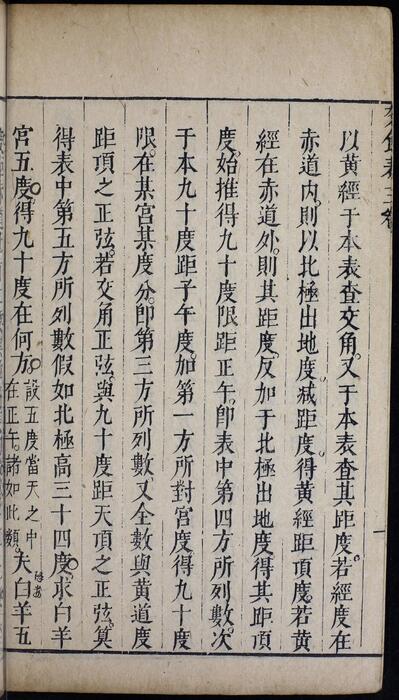 以黃經于本表查交角。又于本表查其距度。若經度在
赤道內。則以北極出地度减距度。得黃經距頂度。若黃
經在赤道外。則其距度。反加于北極出地度得其距頂
度。始推得九十度限距正午。卽表中第四方所列數。次
于本九十度距子午度。加第一方所對宮度得九十度
限。在某宮某度分。卽第三方所列數。又全數與黃道度
距頂之正弦。若交角正弦。與九十度距天頂之正弦。算
得表中第五方所列數假如北極高三十四度。求白羊
宮五度。得九十度在何方。
設五度當天之中
在正午。諸如此類。
夫白羊五